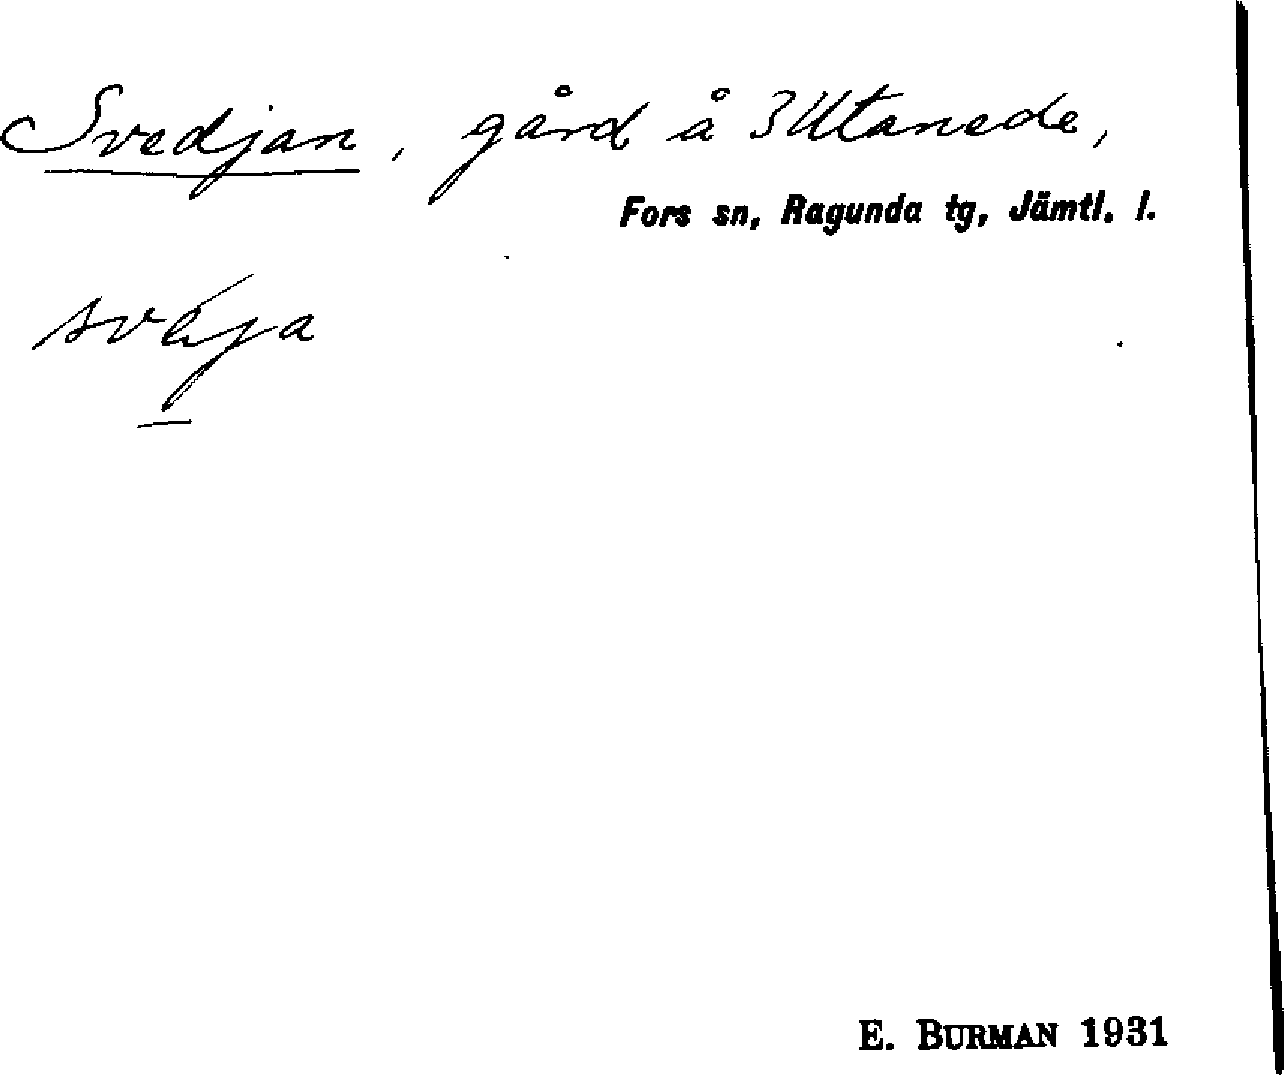 Svedjan, gård å 3 Utanede,
Fors sn, Ragunda tg, Jämtl. l.
svéja
E. BURMAN 1931